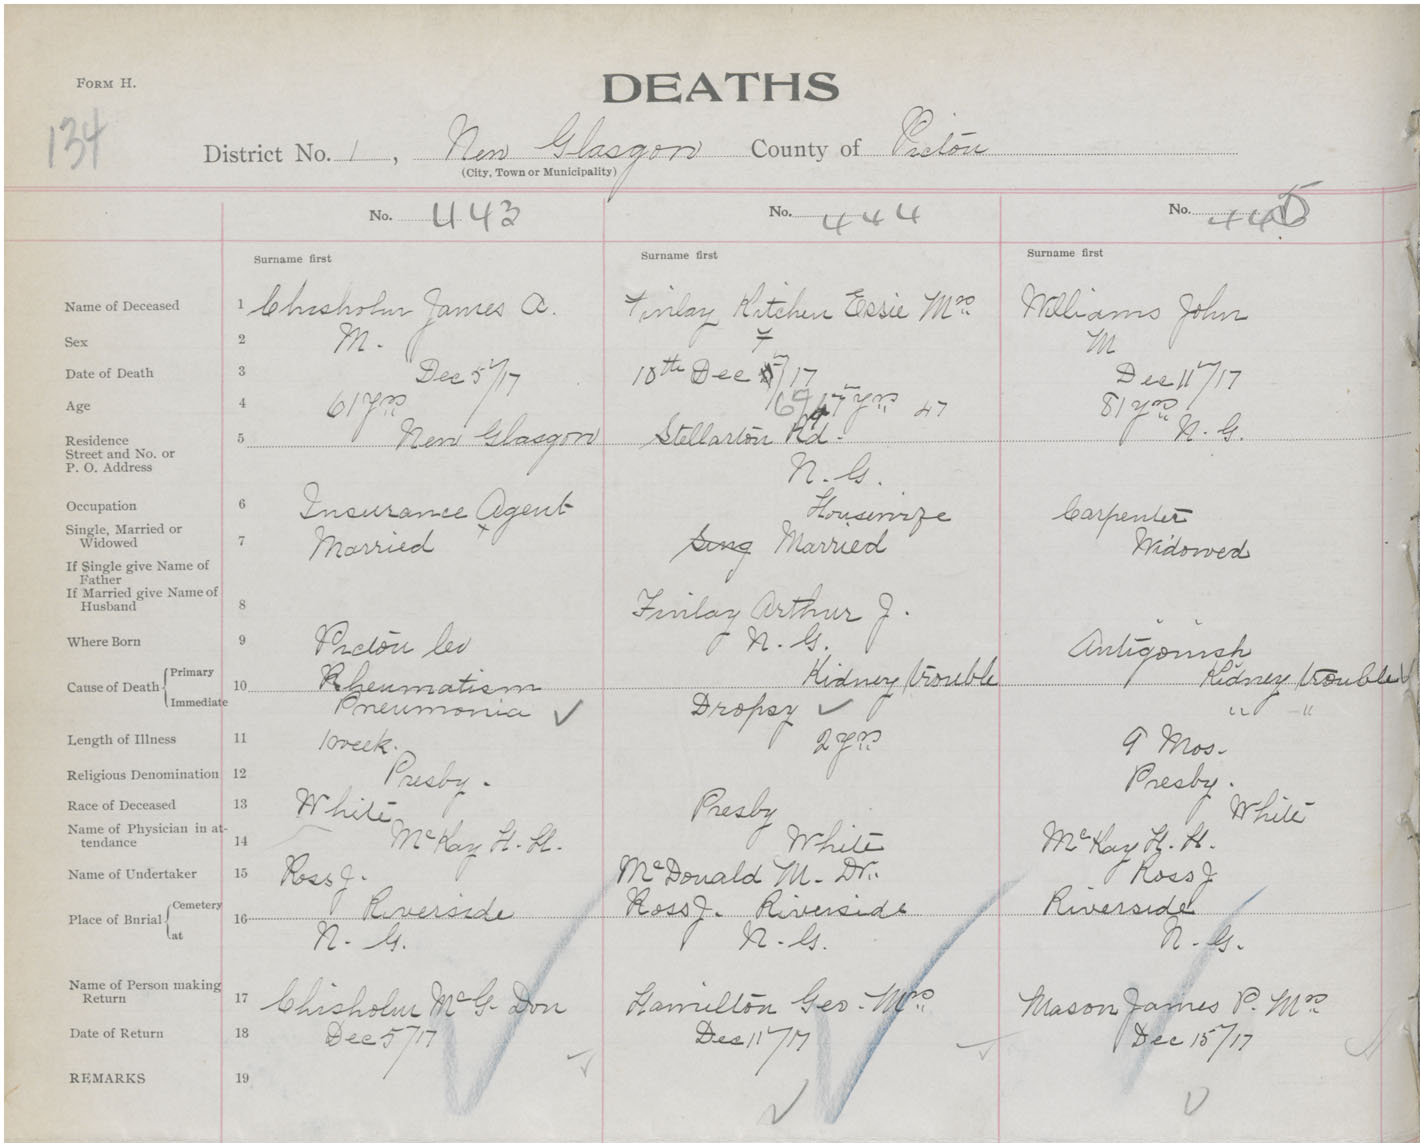 FORM H.
DEATHS
134
District No. 1, New Glasgow County of Pictou
(City, Town or Municipality)
No. 443 No. 444 No. 445
Surname first Surname first Surname first
Name of Deceased 1 Chisholm James A. Finlay Kitchen Essie Mrs Williams John
Sex 2 M. F M
Date of Death 3 Dec 5"/17 10th Dec /17 Dec 11"/17
Age 4 61 yrs yrs 47 81 yrs
Residence
Street and No. or
P. O. Address
5 New Glasgow Stellarton Rd. N. G.
N. G.
Occupation 6 Insurance Agent Housewife Carpenter
Single, Married or
Widowed
7 Married Sing Married Widowed
If Single give Name of
Father
If Married give Name of
Husband
8 Finlay Arthur J.
Where Born 9 Pictou Co N. G. Antigonish
Cause of Death Primary 10 Rheumatism Kidney trouble Kidney trouble
Immediate Pneumonia ✓ Dropsy ✓ " "
Length of Illness 11 1 week. 2 yrs 9 Mos.
Religious Denomination 12 Presby. Presby.
Race of Deceased 13 White Presby White
Name of Physician in at-
tendance
14 McKay H. H. White McKay H. H.
Name of Undertaker 15 Ross J. McDonald M. Dr. Ross J
Place of Bnrial Cemetery 16 Riverside Ross J. Riverside Riverside
at N. G. N. G. N. G.
Name of Person making
Return
17 Chisholm McG. Don Hamilton Geo. Mrs Mason James P. Mrs
Date of Return 18 Dec 5"/17 Dec 11"/17 Dec 15"/17
REMARKS 19